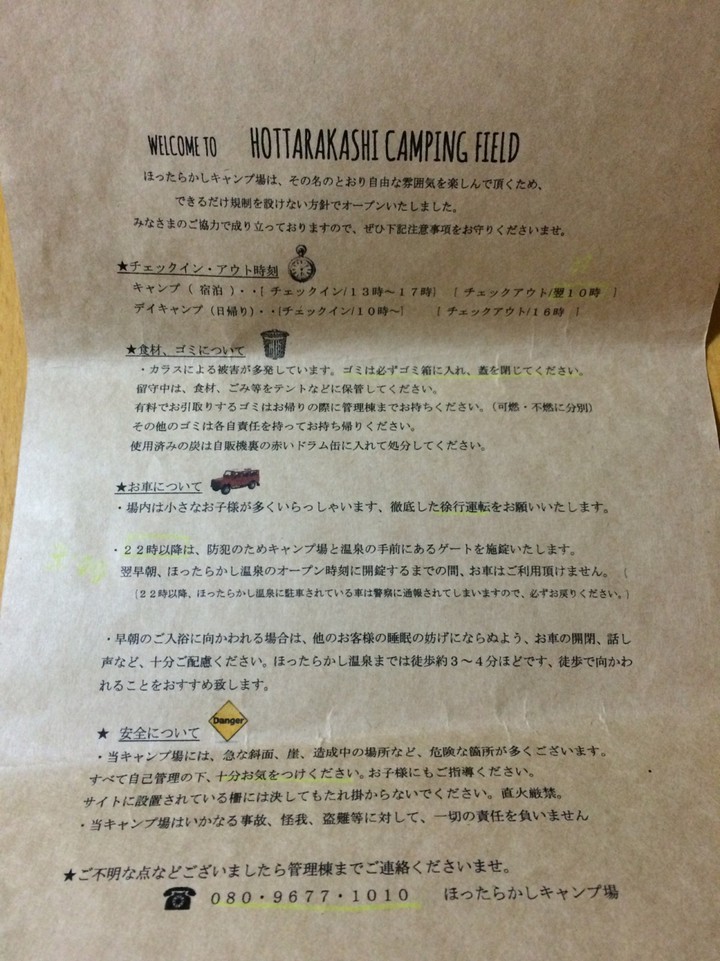 WELCOME TO HOTTARAKASHI CAMPING FIELD
ほったらかしキャンプ場は、その名のとおり自由な雰囲気を楽しんで頂くため、
できるだけ規制を設けない方針でオープンいたしました。
みなさまのご協力で成り立っておりますので、ぜひ下記注意事項をお守りくださいませ。
★チェックイン・アウト時刻
キャンプ（宿泊）・・[ チェックイン/１３時～１７時] [ チェックアウト/翌１０時 ]
デイキャンプ（日帰り）・・[チェックイン/１０時～] [ チェックアウト/１６時 ]
★食材、ゴミについて
・カラスによる被害が多発しています。ゴミは必ずゴミ箱に入れ、蓋を閉じてください。
留守中は、食材、ごみ等をテントなどに保管してください。
有料でお引取りするゴミはお帰りの際に管理棟までお持ちください。（可燃・不燃に分別）
その他のゴミは各自責任を持ってお持ち帰りください。
使用済みの炭は自販機裏の赤いドラム缶に入れて処分してください。
★お車について
・場内は小さなお子様が多くいらっしゃいます、徹底した徐行運転をお願いいたします。
・２２時以降は、防犯のためキャンプ場と温泉の手前にあるゲートを施錠いたします。
翌早朝、ほったらかし温泉のオープン時刻に開錠するまでの間、お車はご利用頂けません。（
（２２時以降、ほったらかし温泉に駐車されている車は警察に通報されてしまいますので、必ずお戻りください。）
・早朝のご入浴に向かわれる場合は、他のお客様の睡眠の妨げにならぬよう、お車の開閉、話し
声など、十分ご配慮ください。ほったらかし温泉までは徒歩約３～４分ほどです、徒歩で向かわ
れることをおすすめ致します。
★ 安全について
Danger
・当キャンプ場には、急な斜面、崖、造成中の場所など、危険な箇所が多くございます。
すべて自己管理の下、十分お気をつけください。お子様にもご指導ください。
サイトに設置されている柵には決してもたれ掛からないでください。直火厳禁。
・当キャンプ場はいかなる事故、怪我、盗難等に対して、一切の責任を負いません
★ご不明な点などございましたら管理棟までご連絡くださいませ。
☎ 080・9677・1010 ほったらかしキャンプ場